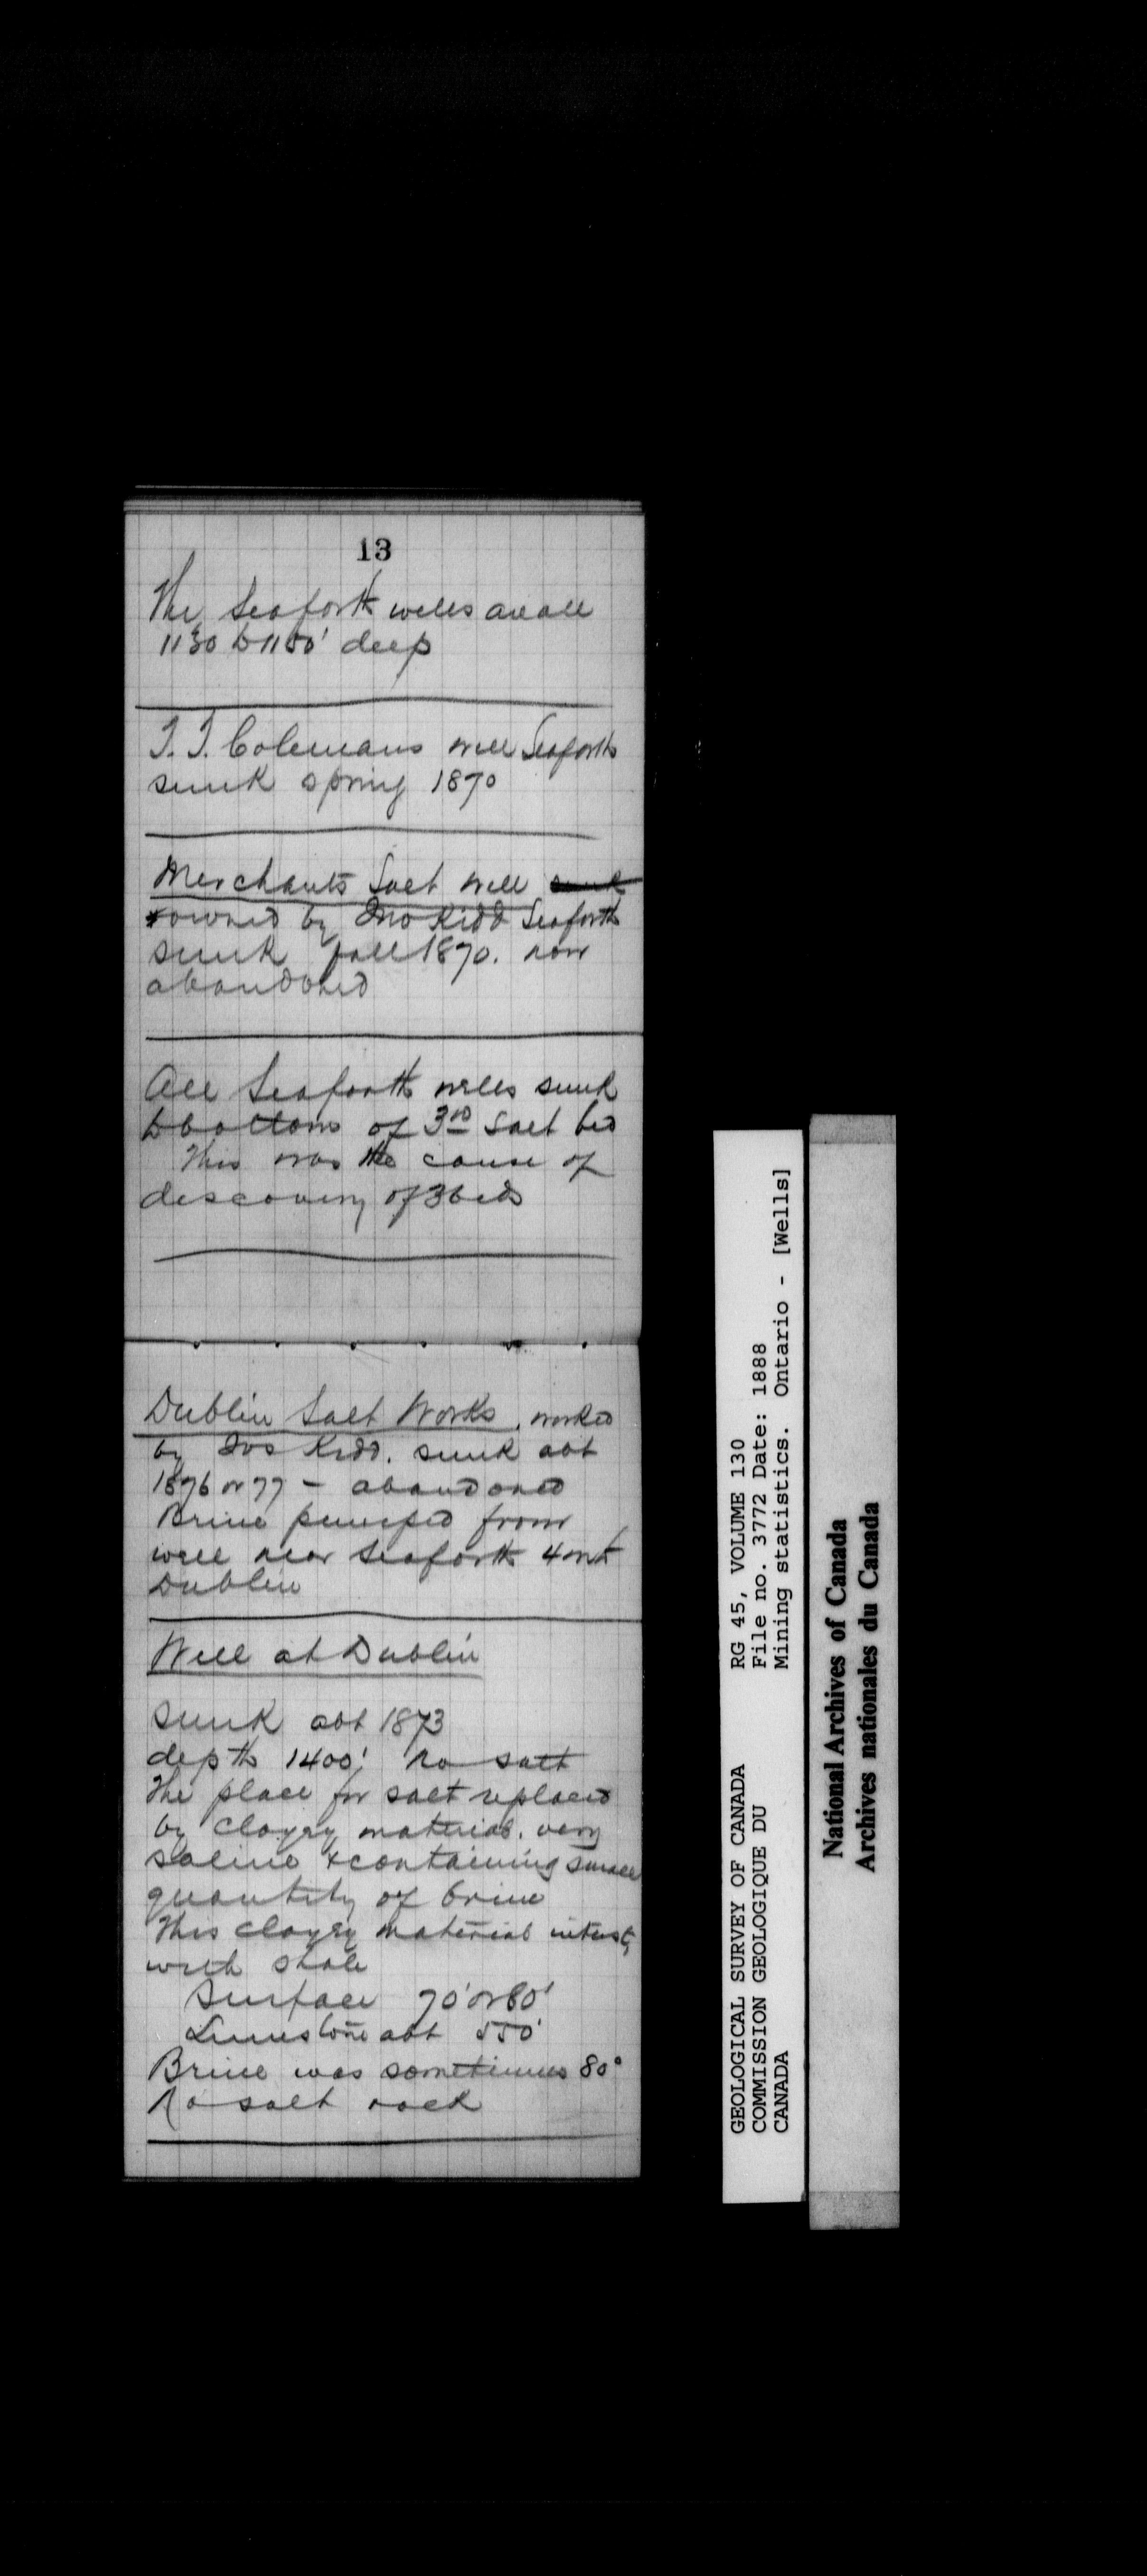 13
The Seaforth wells are all
1130 to 1150' deep
T. T. Colemans well Seaforth
sunk spring 1870
Merchants Salt well sunk
owned by Jno Kidd Seaforth
sunk fall 1870. now
abandoned
All Seaforth wells sunk
to bottom of 3rd salt bed
This was the cause of
discovery of 3 beds
Dublin Salt Works. worked
by Jos Kidd. sunk abt
1876 or 77 - abandoned
Brine pumped from
well near Seaforth 4 m to
Dublin
Well at Dublin
sunk abt 1873
depth 1400' no salt
The place for salt replaced
by clayey material. very
saline & containing small
quantity of brine
This clayey material
with shale
Surface 70' or 80'
Limestone abt 550'
Brine was sometimes 80°
No salt rock
GEOLOGICAL SURVEY OF CANADA
COMMISSION GEOLOGIQUE DU
CANADA
RG 45, VOLUME 130
File no. 3772 Date: 1888
Mining statistics. Ontario - [Wells]
National Archives of Canada
Archives nationales du Canada